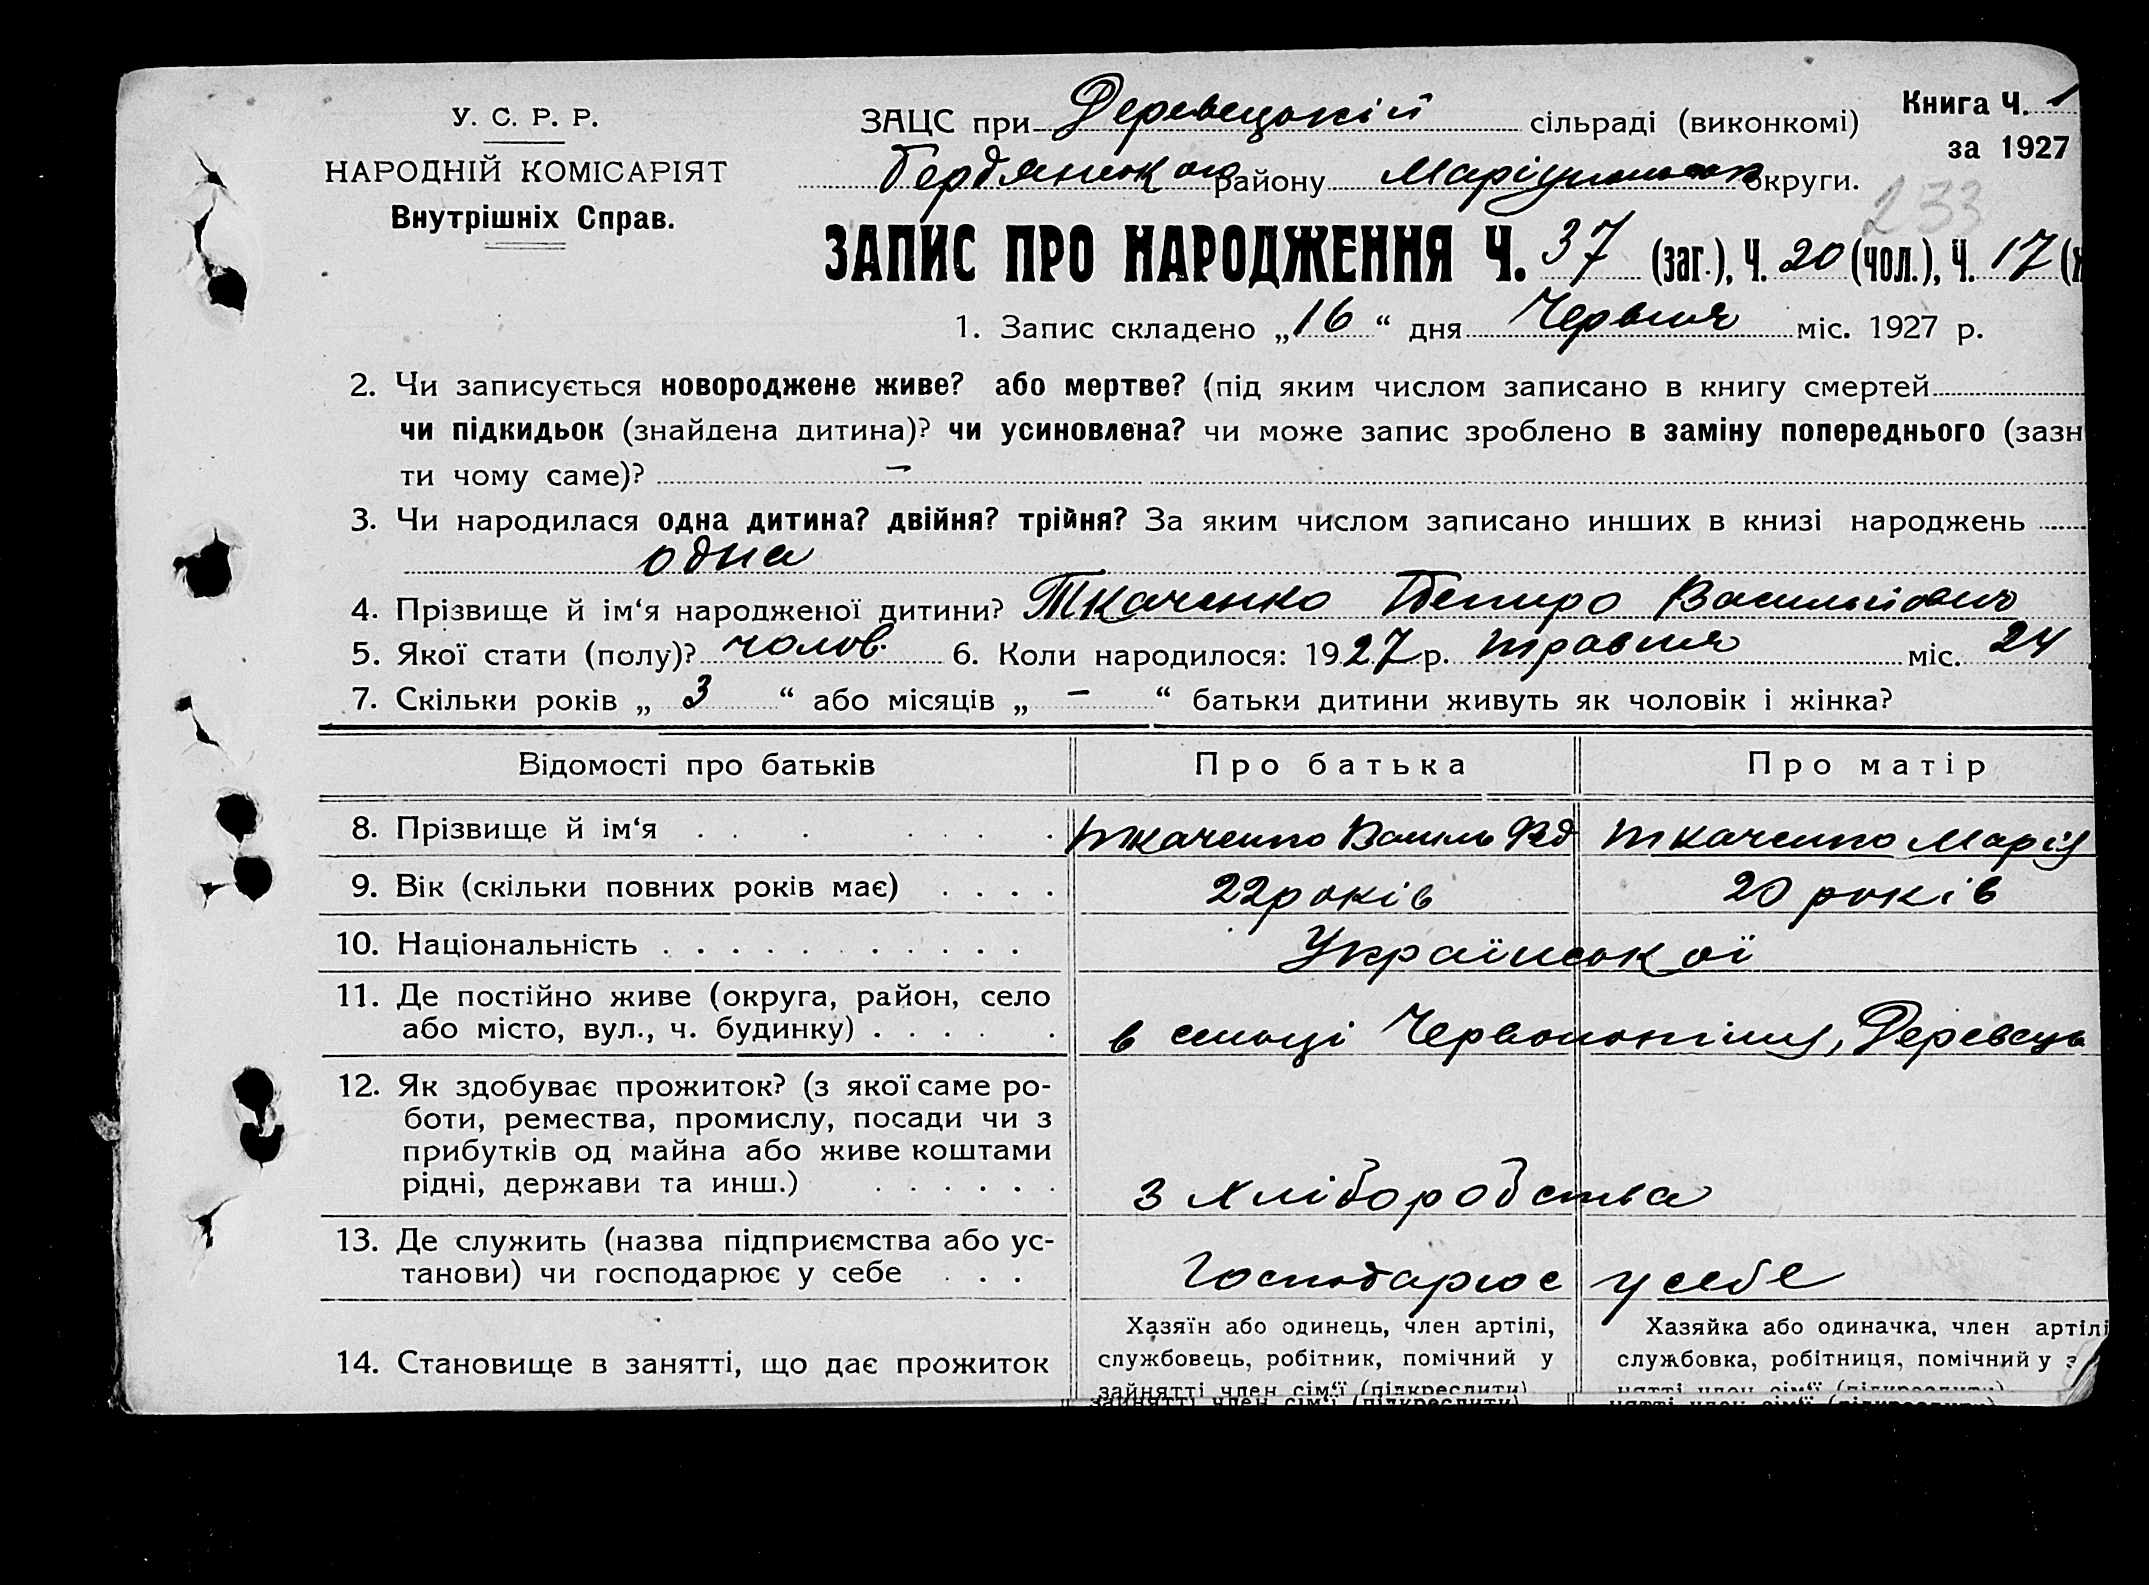 У. С. Р. Р.
НАРОДНІЙ КОМІСАРІЯТ
Внутрішніх Справ.
ЗАЦС при Деревецькій сільраді (виконкомі)
Книга Ч. 1
за 1927
Бердянського району Маріупольськ округи.
233
ЗАПИС ПРО НАРОДЖЕННЯ Ч. 37 (заг.), Ч. 20 (чол.), Ч. 17 (ж
1. Запис складено „16“ дня Червня міс. 1927 р.
2. Чи записується новороджене живе? або мертве? (під яким числом записано в книгу смертей
чи підкидьок (знайдена дитина)? чи усиновлена? чи може запис зроблено в заміну попереднього (зазн
ти чому саме)? —
3. Чи народилася одна дитина? двійня? трійня? За яким числом записано инших в книзі народжень
одна
4. Прізвище й ім‘я народженої дитини? Ткаченко Петро Васильович
5. Якої стати (полу)? чолов. 6. Коли народилося: 1927 р. травня міс. 24
7. Скільки років „ 3 “ або місяців „ — “ батьки дитини живуть як чоловік і жінка?
Відомості про батьків Про батька Про матір
8. Прізвище й ім‘я Ткаченко Василь Фед Ткаченко Марія
9. Вік (скільки повних років має) 22 років 20 років
10. Національність Української
11. Де постійно живе (округа, район, село
або місто, вул., ч. будинку) в селищі Деревець
12. Як здобуває прожиток? (з якої саме ро-
боти, ремества, промислу, посади чи з
прибутків од майна або живе коштами
рідні, держави та инш.) з хліборобства
13. Де служить (назва підприємства або ус-
танови) чи господарює у себе Господарює у себе
14. Становище в занятті, що дає прожиток
Хазяїн або одинець, член артілі,
службовець, робітник, помічний у
зайнятті член сім‘ї (підкреслити)
Хазяйка або одиначка, член артілі
службовка, робітниця, помічний у з
нятті член сім‘ї (підкреслити)